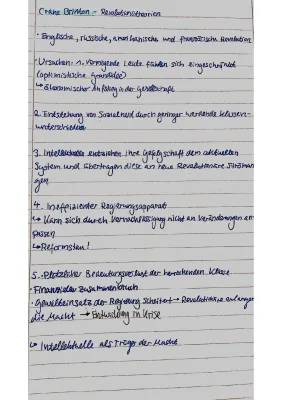 Crane Brinton - Revolutionstheorien
· Englische, russische, amerikanische und französische Revolution
· Ursachen: 1. Vermögende Leute fühlen sich eingeschränkt
(optimistische Grundidee)
↳ ökonomischer Aufstieg in der Gesellschaft
2. Entstehung von Sozialneid durch geringer werdende Klassen-
unterschiede
3. Intellektuelle entziehen ihre Gefolgschaft dem aktuellen
System und übertragen diese an neue Revolutionäre Strömun
gen
4. Ineffizienter Regierungsapparat
↳ Kann sich durch Vernachlässigung nicht an Veränderungen an
passen
↳ Reformstau!
5. Plötzlicher Bedeutungsverlust der herrschenden Klasse
· Finanzieller Zusammenbruch
· Gewalteinsatz der Regierung scheitert → Revolutionäre erlangen
die Macht → Entwicklung in Krise
↳ Intellektuelle als Träger der Macht